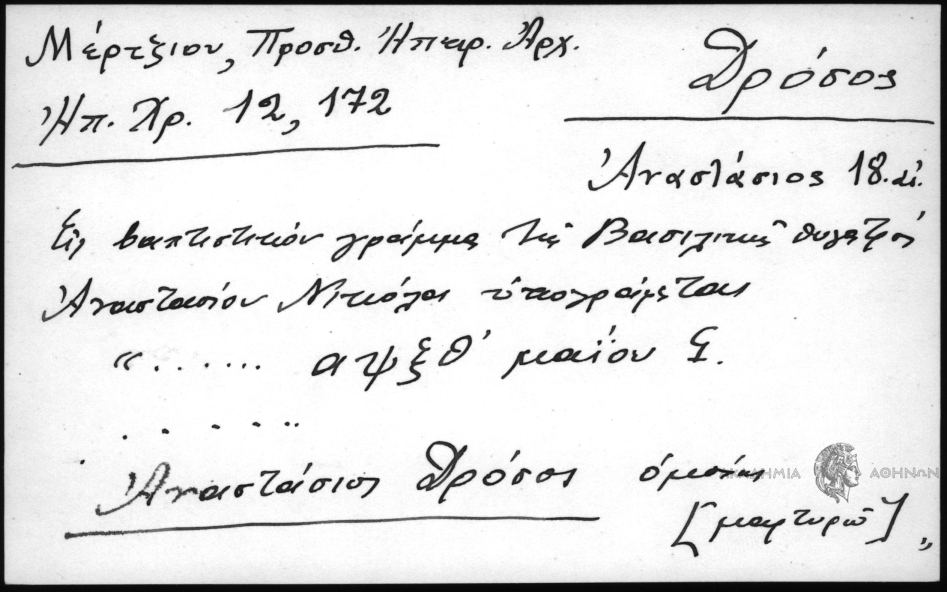 Μέρτζιου, Προσθ. Ἠπειρ. Ἀρχ.
Ἠπ. Χρ. 12, 172
Δρόσος
Ἀναστάσιος 18. αἰ.
Εἰς βαπτιστικόν γράμμα τῆς Βασιλικῆς θυγατρός
Ἀναστασίου Νικόλα ὑπογράφεται
“...... αψξθ' μαΐου ϛ.
......
Ἀναστάσιος Δρόσος ὁμοίως
[μαρτυρῶ] „
ΑΚΑΔΗΜΙΑ ΑΘΗΝΩΝ